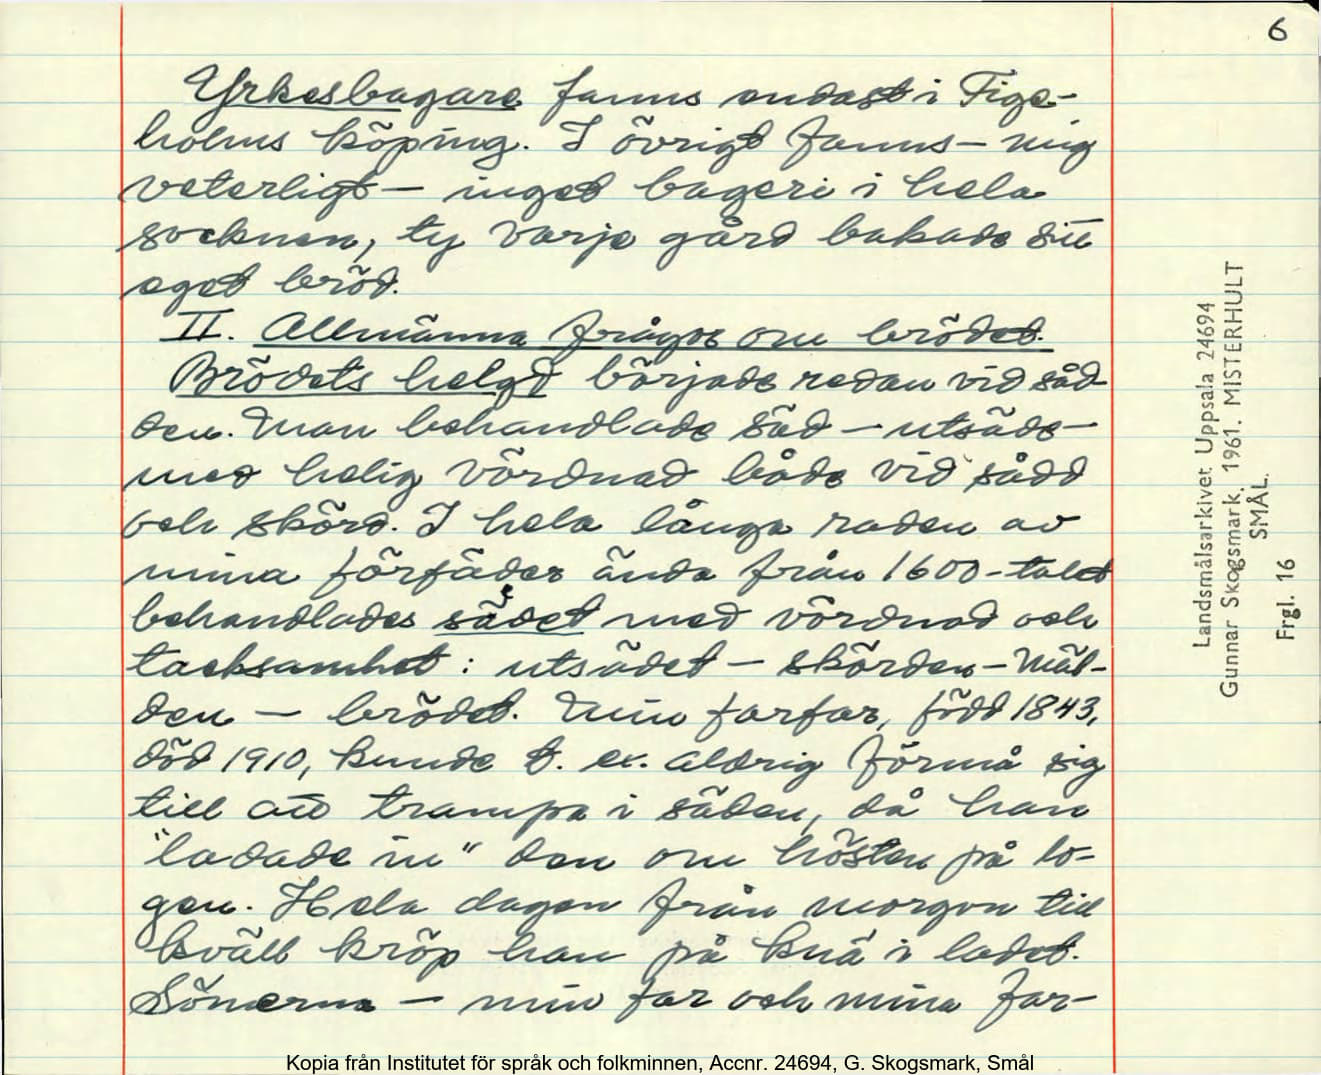 6
Yrkesbagare fanns endast i Fige-
holms köping. I övrigt fanns - mig
veterligt - inget bageri i hela
socknen, ty varje gård bakade sitt
eget bröd.
II. Allmänna frågor om brödet.
Brödets helgd började redan vid såd
den. Man behandlade säd - utsäde -
med helig vördnad både vid sådd
och skörd. I hela långa raden av
mina förfäder ända från 1600-talet
behandlades sädet med vördnad och
tacksamhet : utsädet - skörden - mäl-
den - brödet. Min farfar, född 1843,
död 1910, kunde t. ex. aldrig förmå sig
till att trampa i säden, då han
"ladade in" den om hösten på lo-
gen. Hela dagen från morgon till
kväll kröp han på knä i ladet.
Sönerna - min far och mina far-
Landsmålsarkivet Uppsala 24694
Gunnar Skogsmark. 1961. MISTERHULT
SMÅL.
Frgl. 16
Kopia från Institutet för språk och folkminnen, Accnr. 24694, G. Skogsmark, Smål